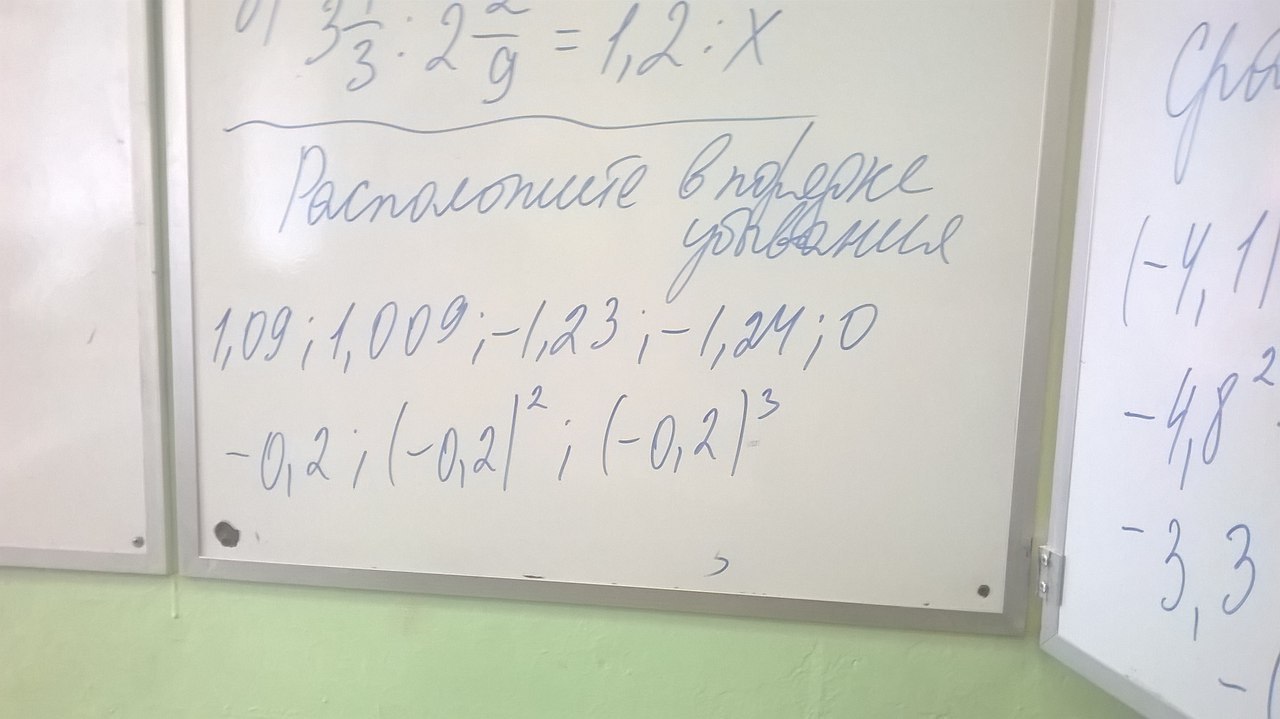 3 1/3 : 2 2/9 = 1,2 : x
Расположите в порядке
убывания
1,09 ; 1,009 ; -1,23 ; -1,24 ; 0
-0,2 ; (-0,2)² ; (-0,2)³
(-4,1)
-4,8²
-3,3